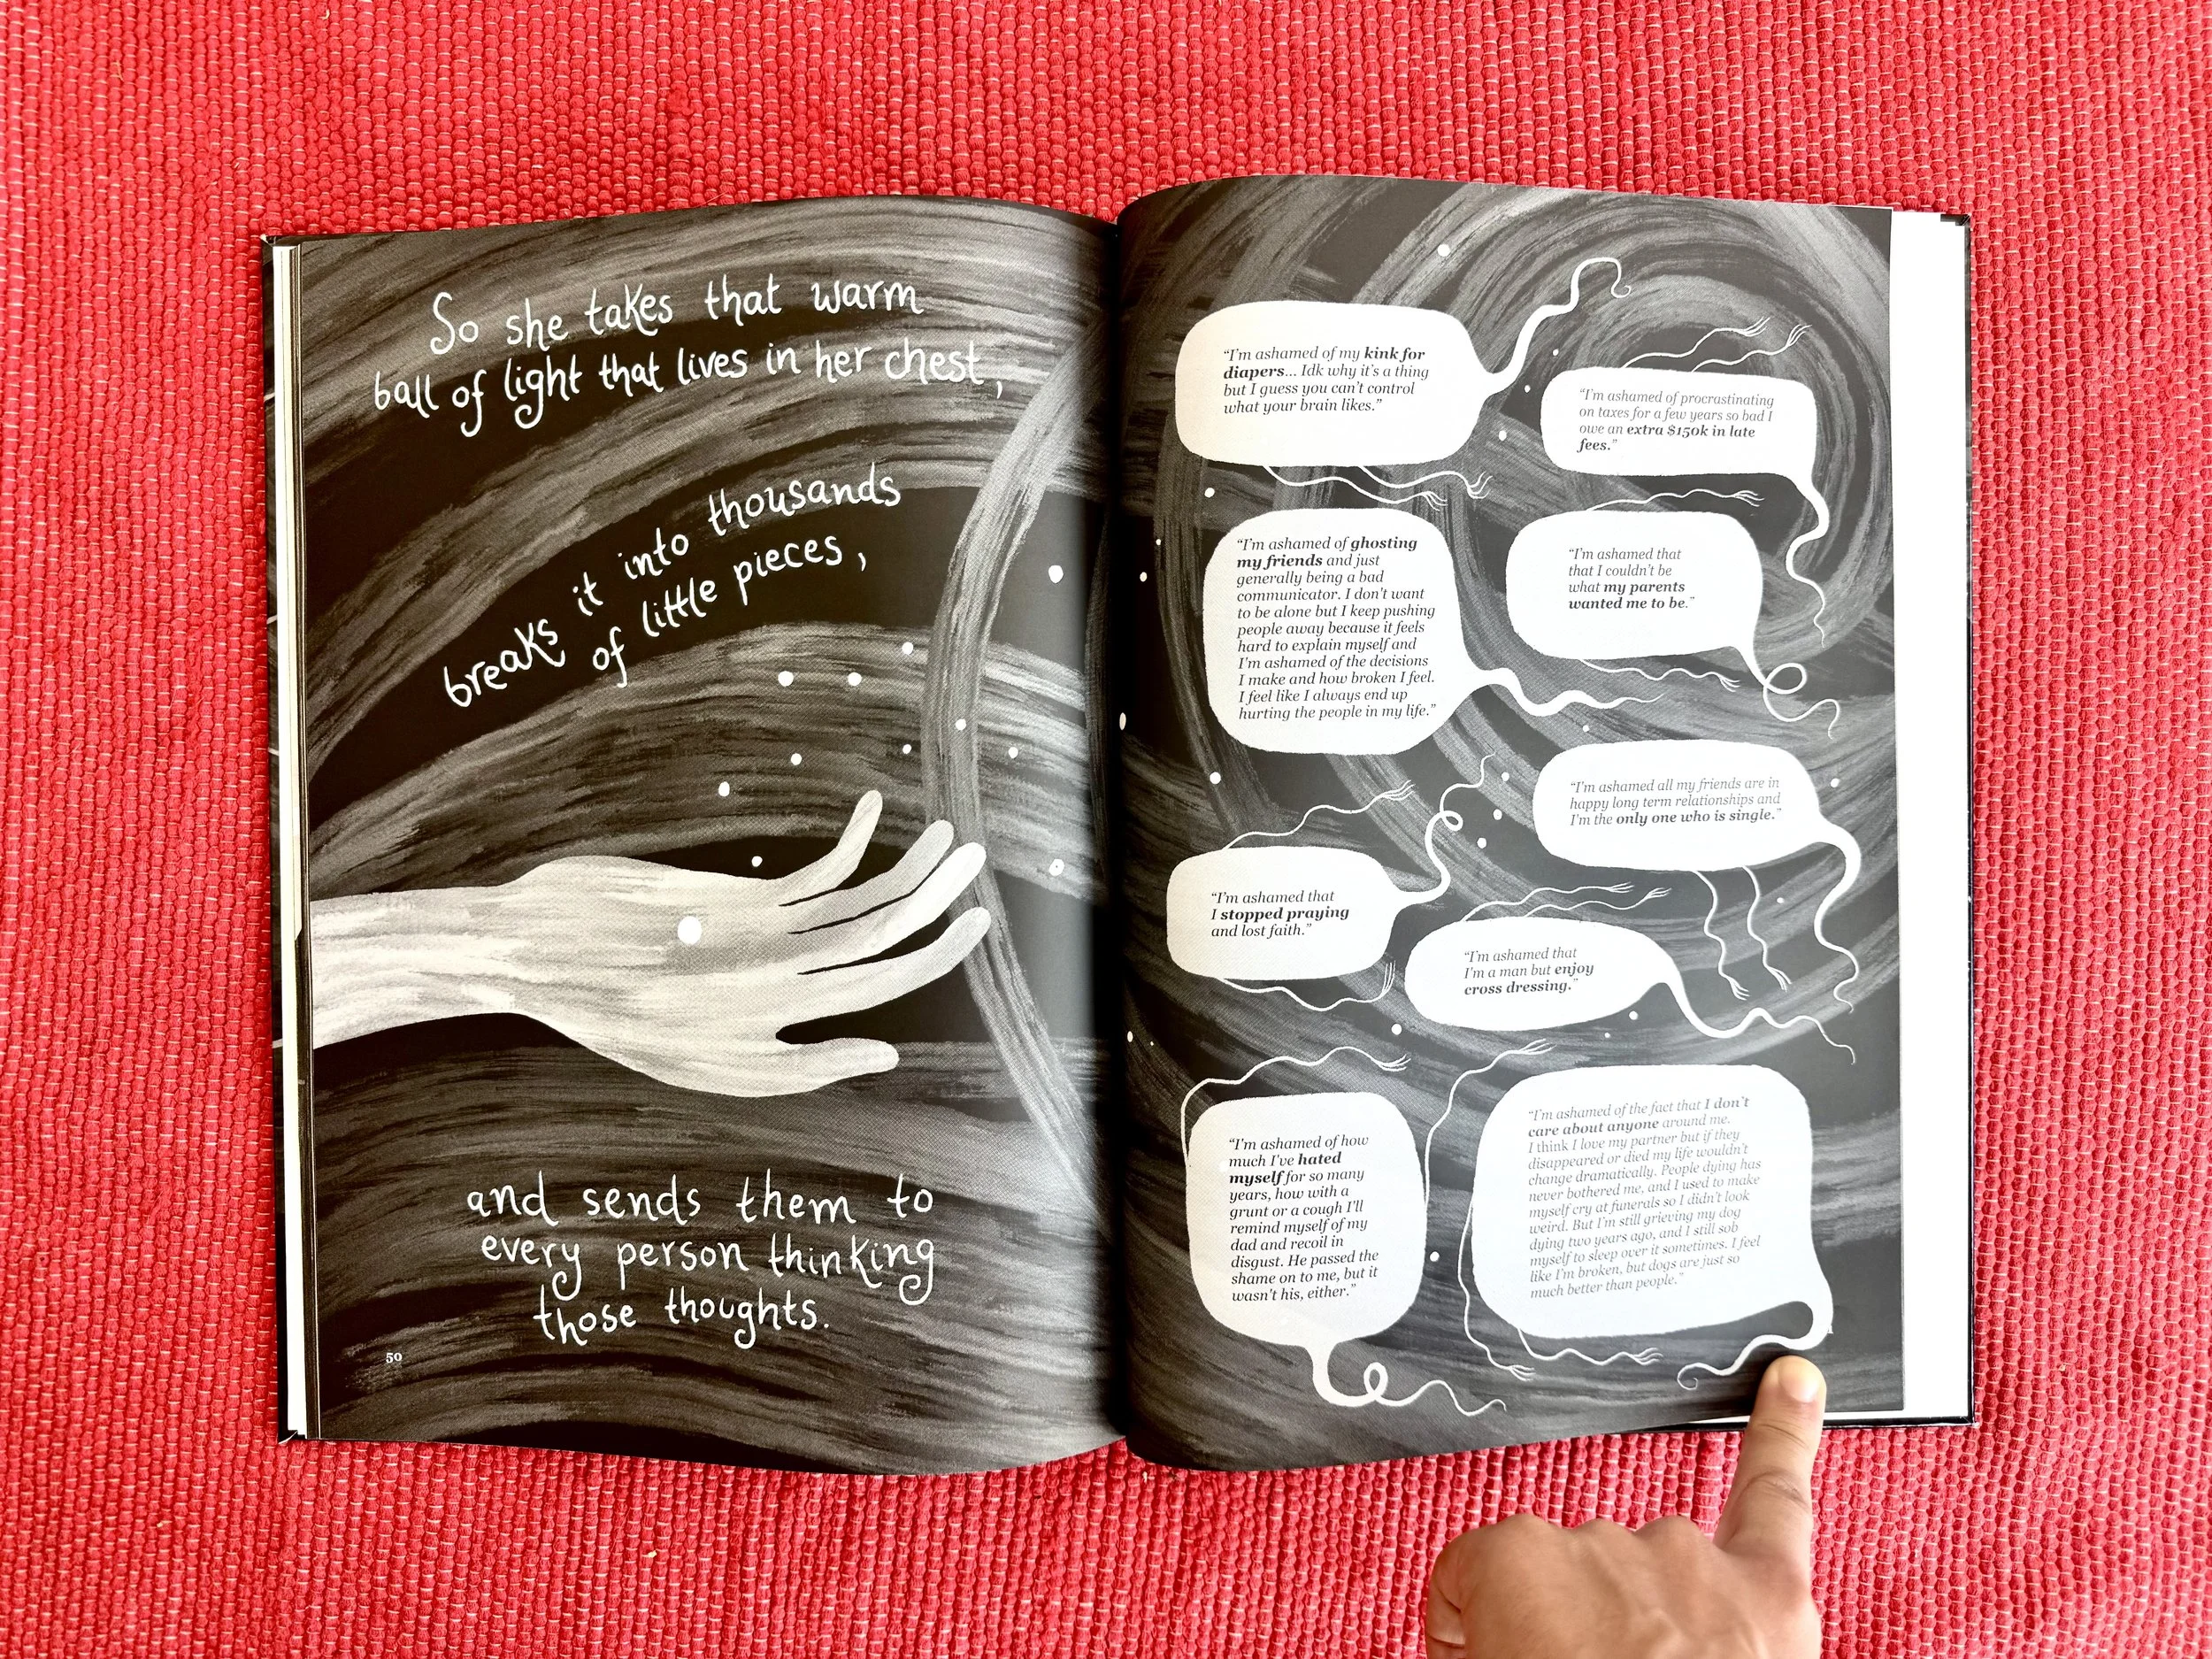 So she takes that warm
ball of light that lives in her chest,
breaks it into thousands
of little pieces,
and sends them to
every person thinking
those thoughts.
50
“I'm ashamed of my kink for
diapers... Idk why it's a thing
but I guess you can't control
what your brain likes.”
“I'm ashamed of procrastinating
on taxes for a few years so bad I
owe an extra $150k in late
fees.”
“I'm ashamed of ghosting
my friends and just
generally being a bad
communicator. I don't want
to be alone but I keep pushing
people away because it feels
hard to explain myself and
I'm ashamed of the decisions
I make and how broken I feel.
I feel like I always end up
hurting the people in my life.”
“I'm ashamed that
that I couldn't be
what my parents
wanted me to be.”
“I'm ashamed all my friends are in
happy long term relationships and
I'm the only one who is single.”
“I'm ashamed that
I stopped praying
and lost faith.”
“I'm ashamed that
I'm a man but enjoy
cross dressing.”
“I'm ashamed of how
much I've hated
myself for so many
years, how with a
grunt or a cough I'll
remind myself of my
dad and recoil in
disgust. He passed the
shame on to me, but it
wasn't his, either.”
“I'm ashamed of the fact that I don't
care about anyone around me.
I think I love my partner but if they
disappeared or died my life wouldn't
change dramatically. People dying has
never bothered me, and I used to make
myself cry at funerals so I didn't look
weird. But I'm still grieving my dog
dying two years ago, and I still sob
myself to sleep over it sometimes. I feel
like I'm broken, but dogs are just so
much better than people.”